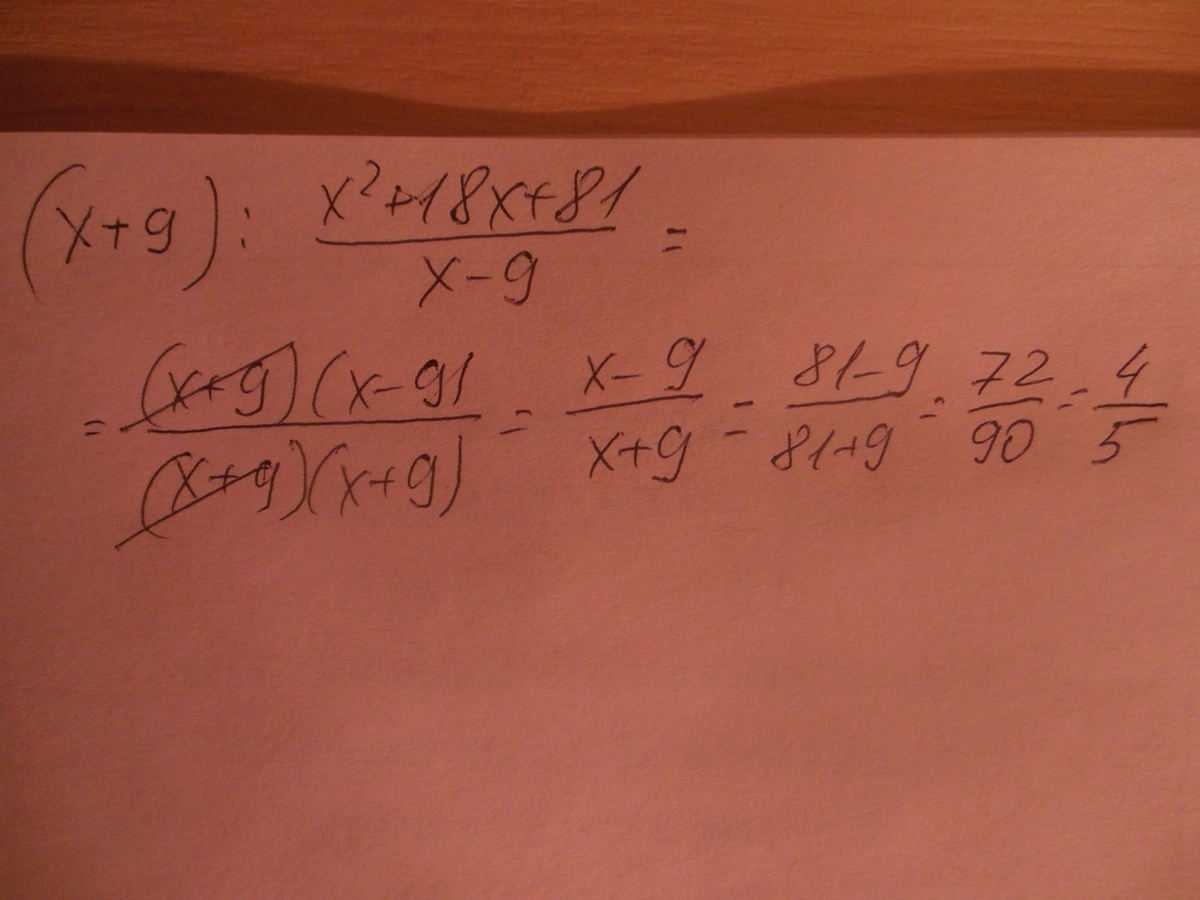 (x+9): \frac{x^2+18x+81}{x-9} =
= \frac{(x+9)(x-9)}{(x+9)(x+9)} = \frac{x-9}{x+9} = \frac{81-9}{81+9} = \frac{72}{90} = \frac{4}{5}